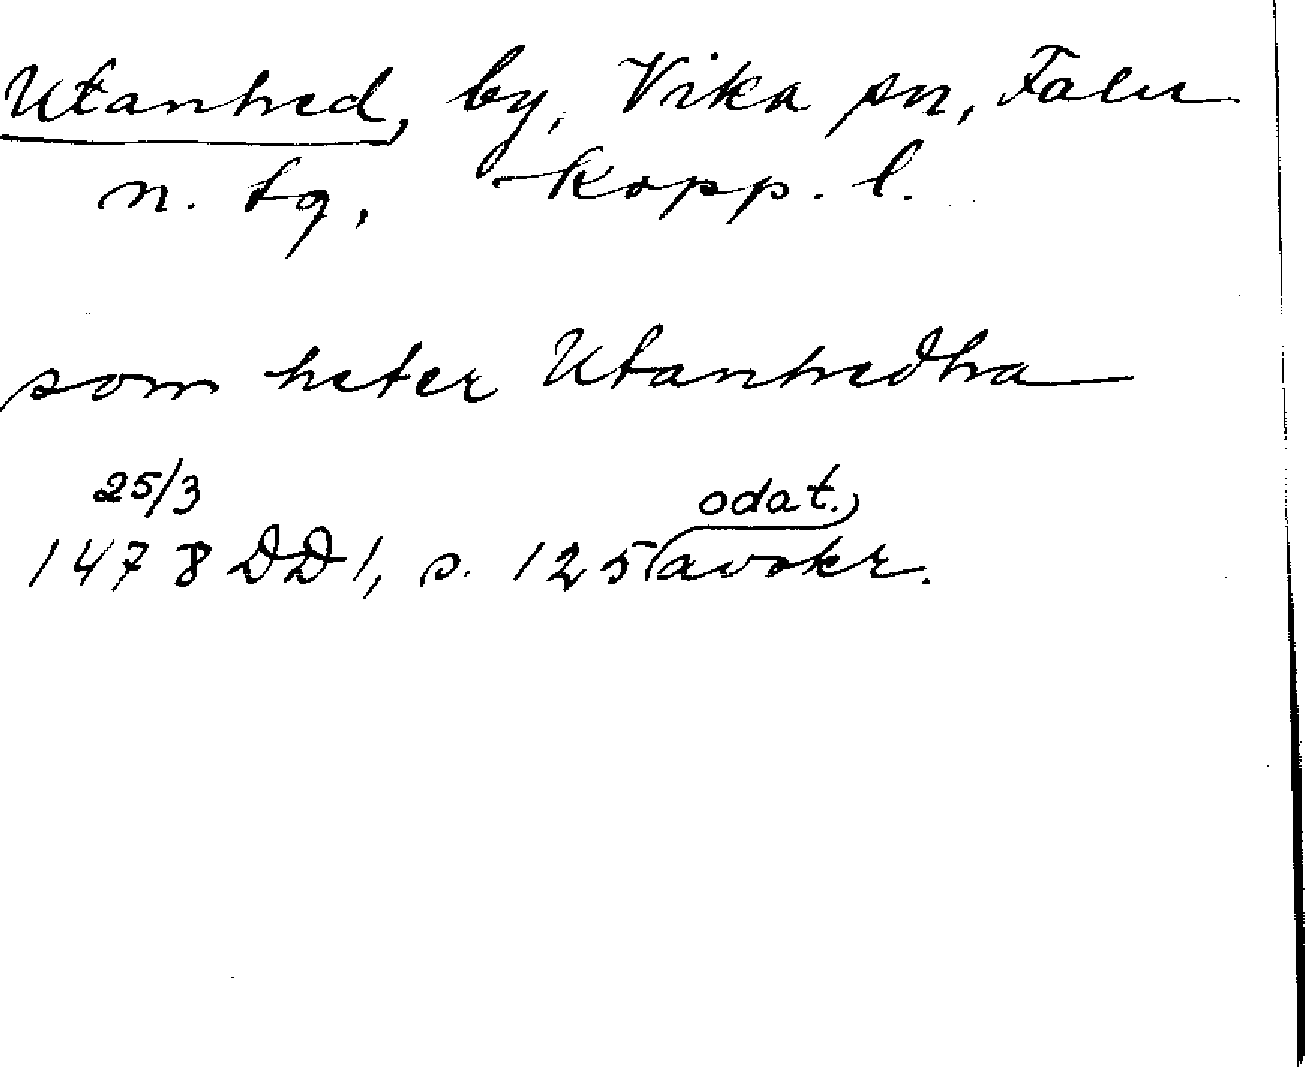 Utanhed, by, Vika sn, Falu
n. tg, Kopp. l.
som heter Utanhedha
25/3
odat.)
1478 DD 1, s. 125 (avskr.